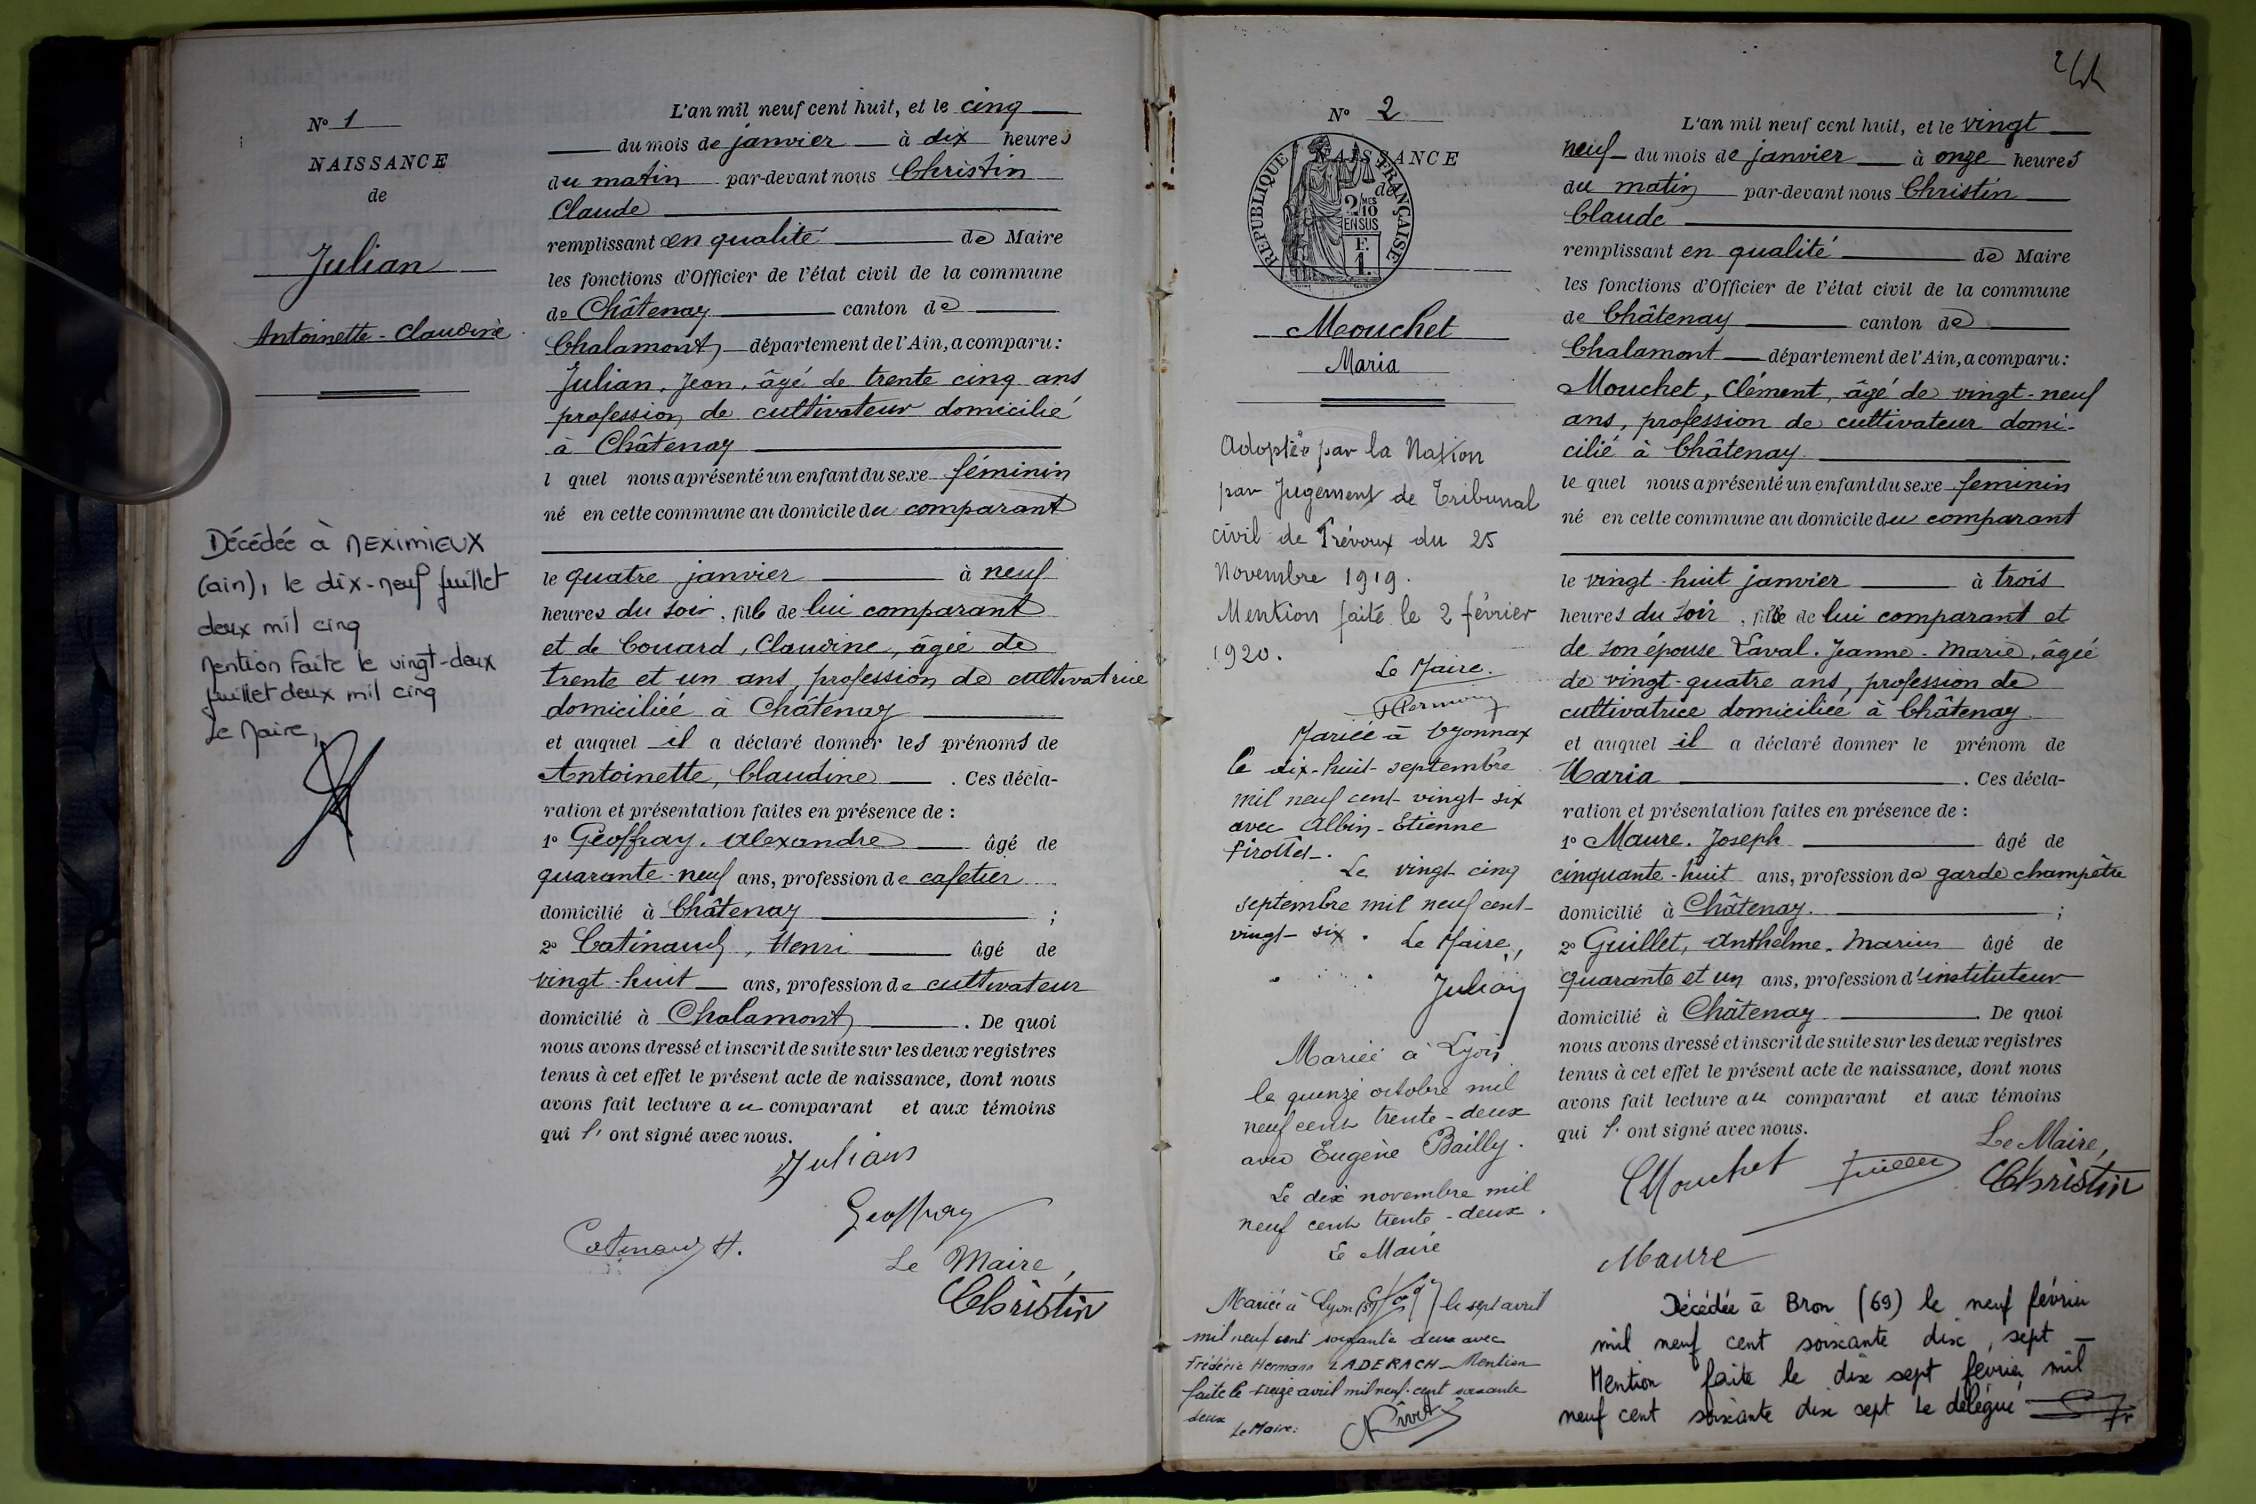 N° 1
NAISSANCE
de
Julian
Antoinette - Claudine
Décédée à MEXIMIEUX
(ain), le dix-neuf juillet
deux mil cinq
Mention faite le vingt-deux
juillet deux mil cinq
Le Maire,
L'an mil neuf cent huit, et le cinq
du mois de janvier à dix heures
du matin par-devant nous Christin
Claude
remplissant en qualité de Maire
les fonctions d'Officier de l'état civil de la commune
de Châtenay canton de
Chalamont département de l'Ain, a comparu :
Julian, Jean, âgé de trente cinq ans
profession de cultivateur domicilié
à Châtenay
l quel nous a présenté un enfant du sexe féminin
né en cette commune au domicile du comparant
le quatre janvier à neuf
heures du soir, fille de lui comparant
et de Couard, Claudine, âgée de
trente et un ans, profession de cultivatrice
domiciliée à Châtenay
et auquel il a déclaré donner les prénoms de
Antoinette, Claudine. Ces décla-
ration et présentation faites en présence de :
1° Geoffray, Alexandre âgé de
quarante-neuf ans, profession de cafetier
domicilié à Châtenay ;
2° Catinaud, Henri âgé de
vingt-huit ans, profession de cultivateur
domicilié à Chalamont. De quoi
nous avons dressé et inscrit de suite sur les deux registres
tenus à cet effet le présent acte de naissance, dont nous
avons fait lecture au comparant et aux témoins
qui l' ont signé avec nous.
Julian
Geoffray
Catinaud H.
Le Maire,
CChristin
N° 2
NAISSANCE
de
RÉPUBLIQUE FRANÇAISE
2/MES
10
EN SUS
F.
1.
Mouchet
Maria
Adoptée par la Nation
par Jugement de Tribunal
civil de Trévoux du 25
Novembre 1919.
Mention faite le 2 février
1920.
Le Maire.
Mariée à Oyonnax
le dix-huit septembre
mil neuf cent vingt six
avec Albin-Etienne
Le vingt cinq
septembre mil neuf cent
vingt six. Le Maire,
Julian
Mariée à Lyon
le quinze octobre mil
neuf cent trente-deux
avec Eugène Bailly.
Le dix novembre mil
neuf cent trente-deux.
Le Maire
Mariée à Lyon le sept avril
mil neuf cent soixante deux avec
Frédéric Hermann LADERACH - Mention
faite le seize avril mil neuf cent soixante
deux Le Maire:
L'an mil neuf cent huit, et le vingt
neuf du mois de janvier à onze heures
du matin par-devant nous Christin
Claude
remplissant en qualité de Maire
les fonctions d'Officier de l'état civil de la commune
de Châtenay canton de
Chalamont département de l'Ain, a comparu :
Mouchet, Clément, âgé de vingt-neuf
ans, profession de cultivateur domi-
cilié à Châtenay
le quel nous a présenté un enfant du sexe feminin
né en cette commune au domicile du comparant
le vingt-huit janvier à trois
heures du soir, fille de lui comparant et
de son épouse Laval. Jeanne-Marie, âgée
de vingt-quatre ans, profession de
cultivatrice domiciliée à Châtenay
et auquel il a déclaré donner le prénom de
Maria. Ces décla-
ration et présentation faites en présence de :
1° Maure. Joseph âgé de
cinquante-huit ans, profession de garde champêtre
domicilié à Châtenay. ;
2° Guillet, Anthelme-Marius âgé de
quarante et un ans, profession d'instituteur
domicilié à Châtenay. De quoi
nous avons dressé et inscrit de suite sur les deux registres
tenus à cet effet le présent acte de naissance, dont nous
avons fait lecture au comparant et aux témoins
qui l' ont signé avec nous.
Le Maire,
CMouchet Guillet CChristin
Maure
Décédée à Bron (69) le neuf février
mil neuf cent soixante dix sept -
Mention faite le dix sept février mil
neuf cent soixante dix sept Le délégué